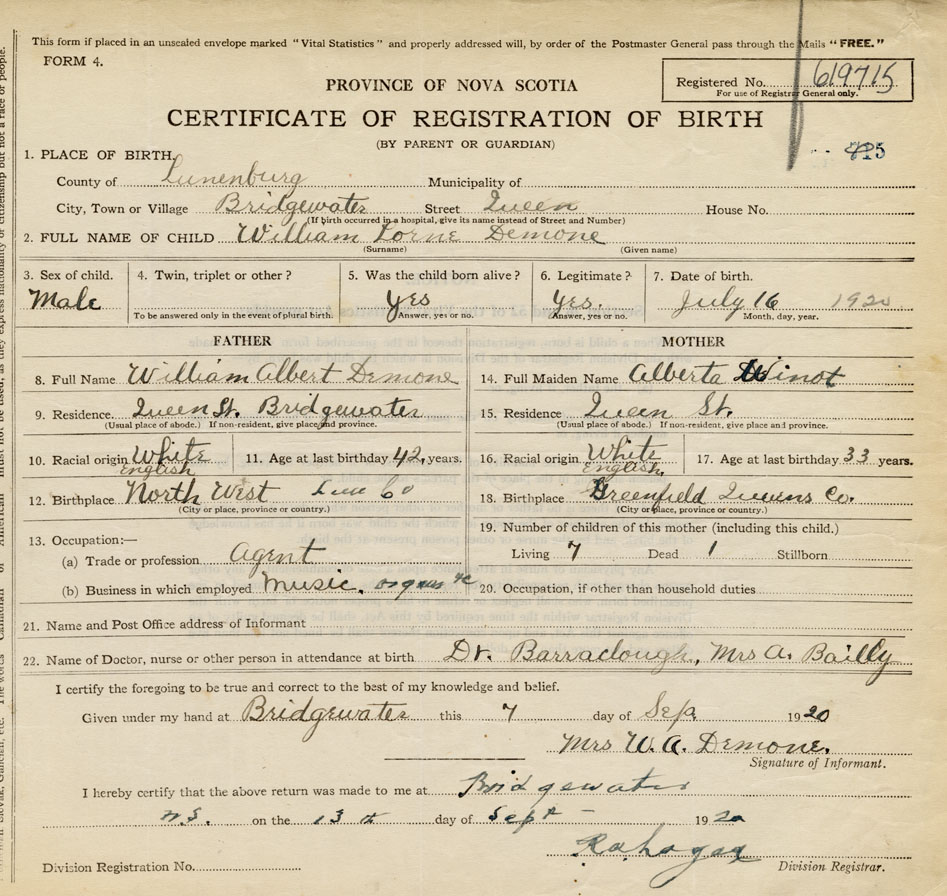 This form if placed in an unsealed envelope marked "Vital Statistics" and properly addressed will, by order of the Postmaster General pass through the Mails "FREE."
FORM 4.
Registered No. 619715
For use of Registrar General only.
PROVINCE OF NOVA SCOTIA
CERTIFICATE OF REGISTRATION OF BIRTH
(BY PARENT OR GUARDIAN)
1. PLACE OF BIRTH.
County of Lunenburg Municipality of
City, Town or Village Bridgewater Street Queen House No.
(If birth occurred in a hospital, give its name instead of Street and Number)
2. FULL NAME OF CHILD William Lorne Demone
(Surname) (Given name)
3. Sex of child. 4. Twin, triplet or other? 5. Was the child born alive? 6. Legitimate? 7. Date of birth.
Male Yes Yes. July 16 1920
To be answered only in the event of plural birth. Answer, yes or no. Answer, yes or no. Month, day, year.
FATHER MOTHER
8. Full Name William Albert Demone 14. Full Maiden Name Alberta Winot
9. Residence. Queen St. Bridgewater 15. Residence Queen St.
(Usual place of abode.) If non-resident, give place and province. (Usual place of abode.) If non-resident, give place and province.
10. Racial origin White English 11. Age at last birthday 42, years. 16. Racial origin White English, 17. Age at last birthday 33 years.
12. Birthplace North West Lune Co 18. Birthplace Greenfield Queens Co.
(City or place, province or country.) (City or place, province or country.)
19. Number of children of this mother (including this child.)
13. Occupation:—
(a) Trade or profession. Agent Living 7 Dead 1 Stillborn
(b) Business in which employed Music, organs &c 20. Occupation, if other than household duties
21. Name and Post Office address of Informant
22. Name of Doctor, nurse or other person in attendance at birth Dr. Barraclough, Mrs A. Bailly
I certify the foregoing to be true and correct to the best of my knowledge and belief.
Given under my hand at Bridgewater this 7 day of Sep. 1920
Mrs W. A. Demone.
Signature of Informant.
I hereby certify that the above return was made to me at Bridgewater
N.S. on the 13th day of Sept 1920
Division Registration No. Division Registrar.